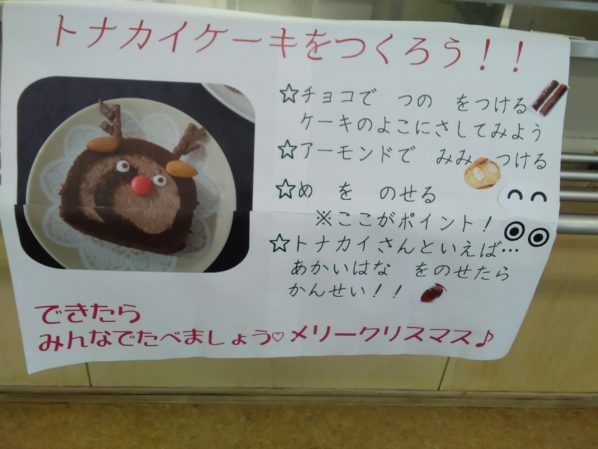 トナカイケーキをつくろう！！
☆チョコで つの をつける
ケーキのよこにさしてみよう
☆アーモンドで みみ つける
☆め を のせる
※ここがポイント！
☆トナカイさんといえば…
あかいはな をのせたら
かんせい！！
できたら
みんなでたべましょう♡メリークリスマス♪